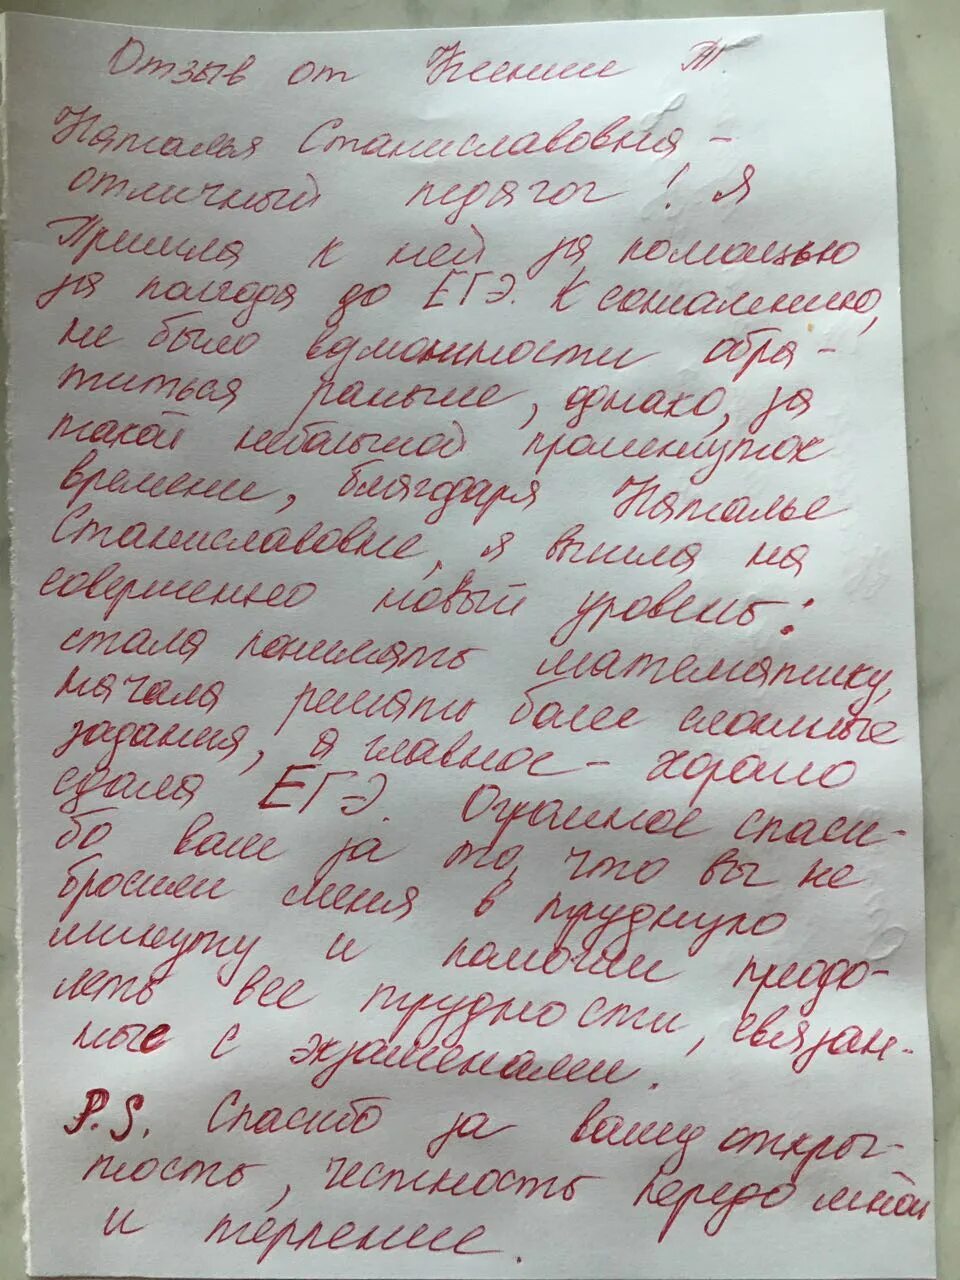 Отзыв от Ксении Т
Наталья Станиславовна -
отличный педагог! Я
пришла к ней за помощью
за полгода до ЕГЭ. К сожалению,
не было возможности обра-
титься раньше, однако, за
такой небольшой промежуток
времени, благодаря Наталье
Станиславовне, я вышла на
совершенно новый уровень:
стала понимать математику,
начала решать более сложные
задания, а главное - хорошо
сдала ЕГЭ. Огромное спаси-
бо вам за то, что вы не
бросили меня в трудную
минуту и помогли преодо-
леть все трудности, связан-
ные с экзаменами.
P.S. Спасибо за вашу откры-
тость, честность передо мной
и терпение.